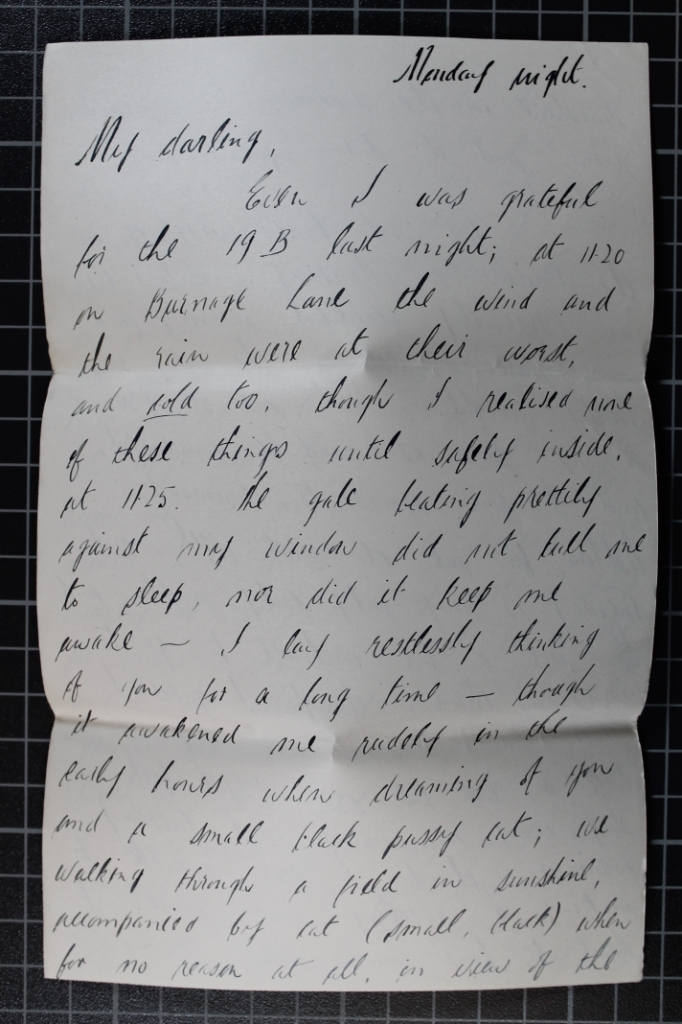 Monday night.
My darling,
Even I was grateful
for the 19B last night; at 11-20
on Burnage Lane the wind and
the rain were at their worst,
and cold too, though I realised none
of these things until safely inside,
at 11-25. The gale beating prettily
against my window did not lull me
to sleep, nor did it keep me
awake — I lay restlessly thinking
of you for a long time — though
it awakened me rudely in the
early hours when dreaming of you
and a small black pussy cat; we
walking through a field in sunshine,
accompanied by cat (small, black) when
for no reason at all, in view of the